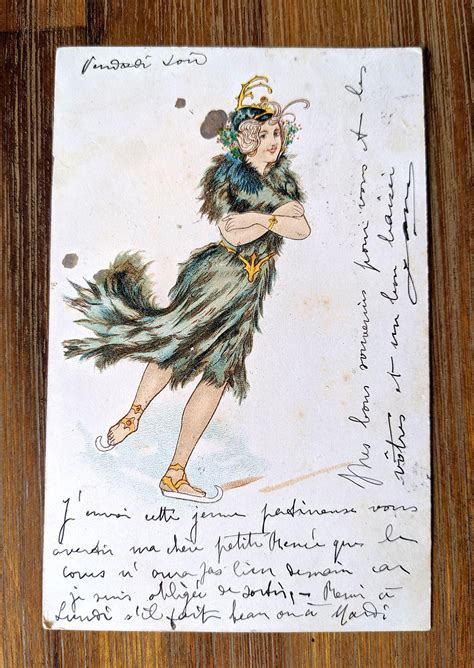 Vendredi soir
J'envoi cette jeune patineuse vous
avertir ma chère petite Renée que le
cours n'aura pas lieu demain car
je suis obligée de sortir, — Remis à
Lundi s'il fait beau ou à Mardi
Mes bons souvenirs pour vous et les
vôtres et un bon baiser